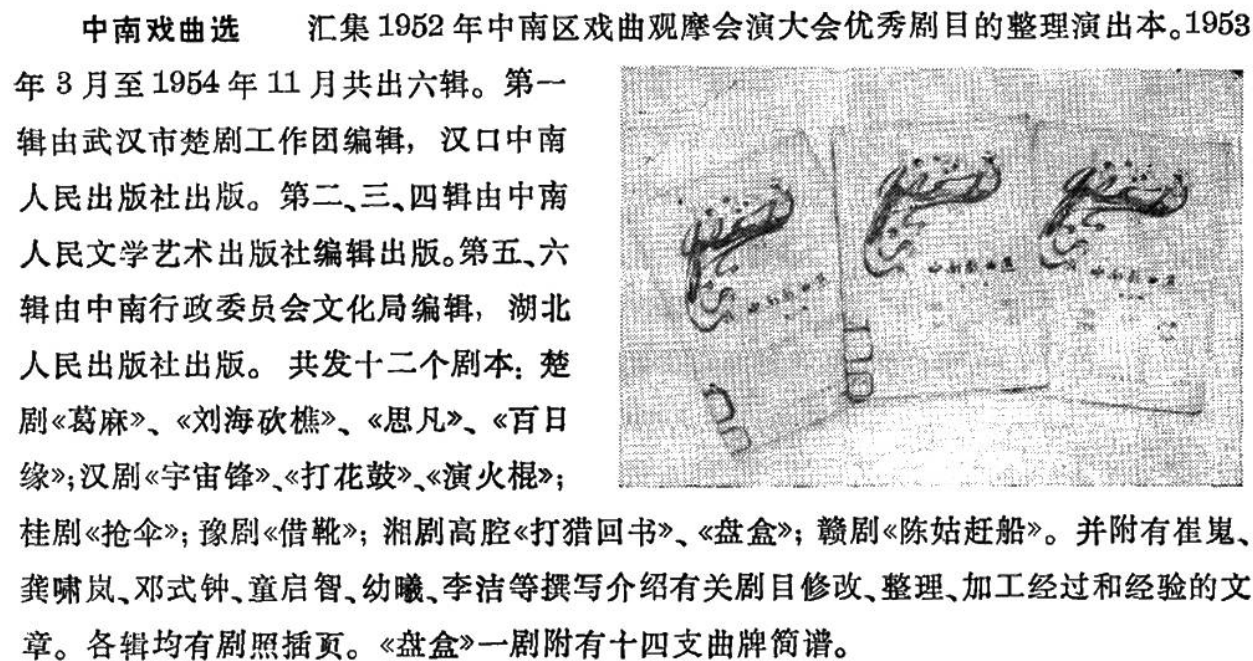 中南戏曲选　　汇集1952年中南区戏曲观摩会演大会优秀剧目的整理演出本。1953
年3月至1954年11月共出六辑。第一
辑由武汉市楚剧工作团编辑，汉口中南
人民出版社出版。第二、三、四辑由中南
人民文学艺术出版社编辑出版。第五、六
辑由中南行政委员会文化局编辑，湖北
人民出版社出版。共发十二个剧本：楚
剧《葛麻》、《刘海砍樵》、《思凡》、《百日
缘》；汉剧《宇宙锋》、《打花鼓》、《演火棍》；
桂剧《抢伞》；豫剧《借靴》；湘剧高腔《打猎回书》、《盘盒》；赣剧《陈姑赶船》。并附有崔嵬、
龚啸岚、邓式钟、童启智、幼曦、李洁等撰写介绍有关剧目修改、整理、加工经过和经验的文
章。各辑均有剧照插页。《盘盒》一剧附有十四支曲牌简谱。
中南戏曲选
中南戏曲选
中南戏曲选